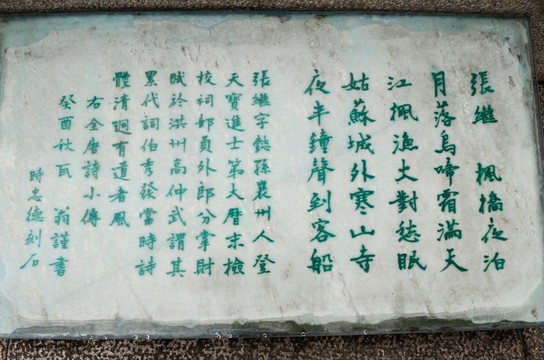 張繼 楓橋夜泊
月落烏啼霜滿天
江楓漁火對愁眠
姑蘇城外寒山寺
夜半鐘聲到客船
張繼字懿孫襄州人登
天寶進士第大曆末檢
校祠部員外郎分掌財
賦於洪州高仲武謂其
累代詞伯秀發當時詩
體清迥有道者風
右全唐詩小傳
癸酉秋瓦翁謹書
時忠德刻石